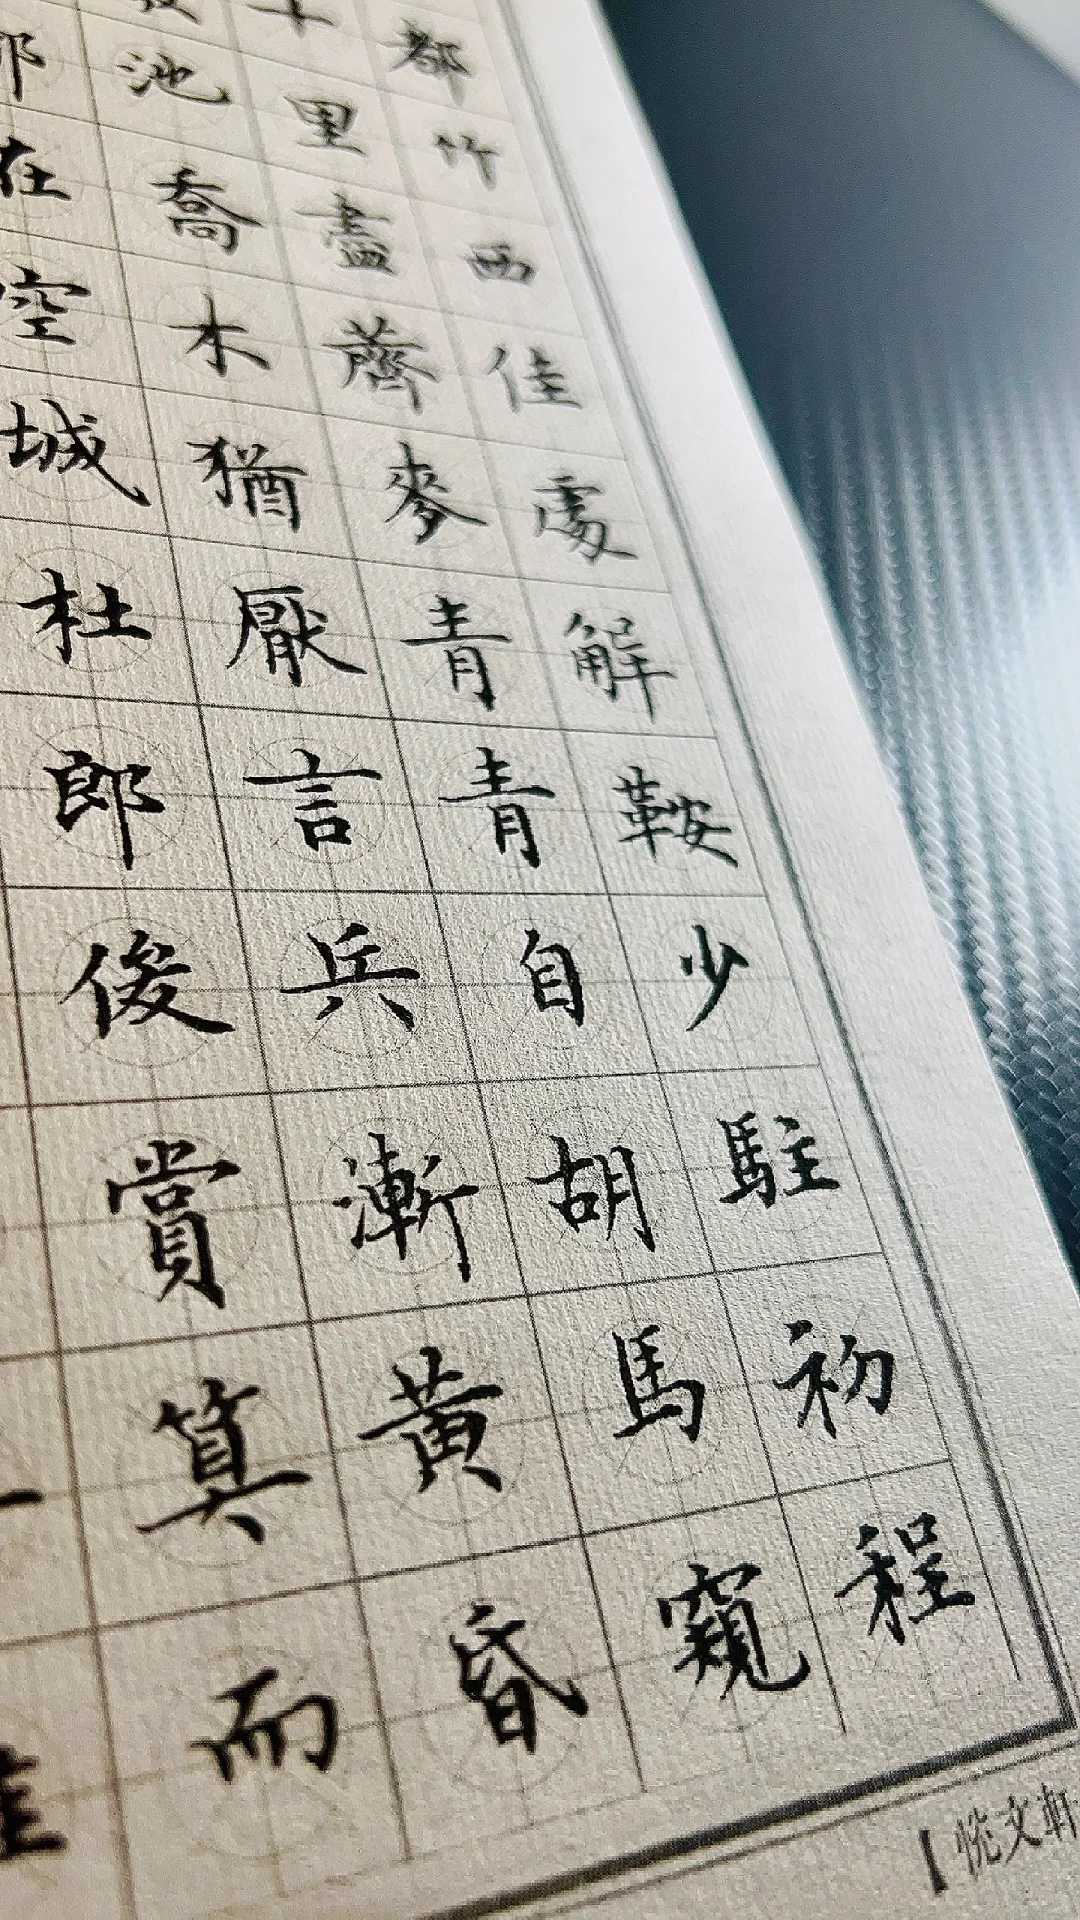 都竹西佳處解鞍少駐初程
十里盡薺麥青青自胡馬窺
池喬木猶厭言兵漸黃昏
在空城杜郎俊賞算而
悅文軒